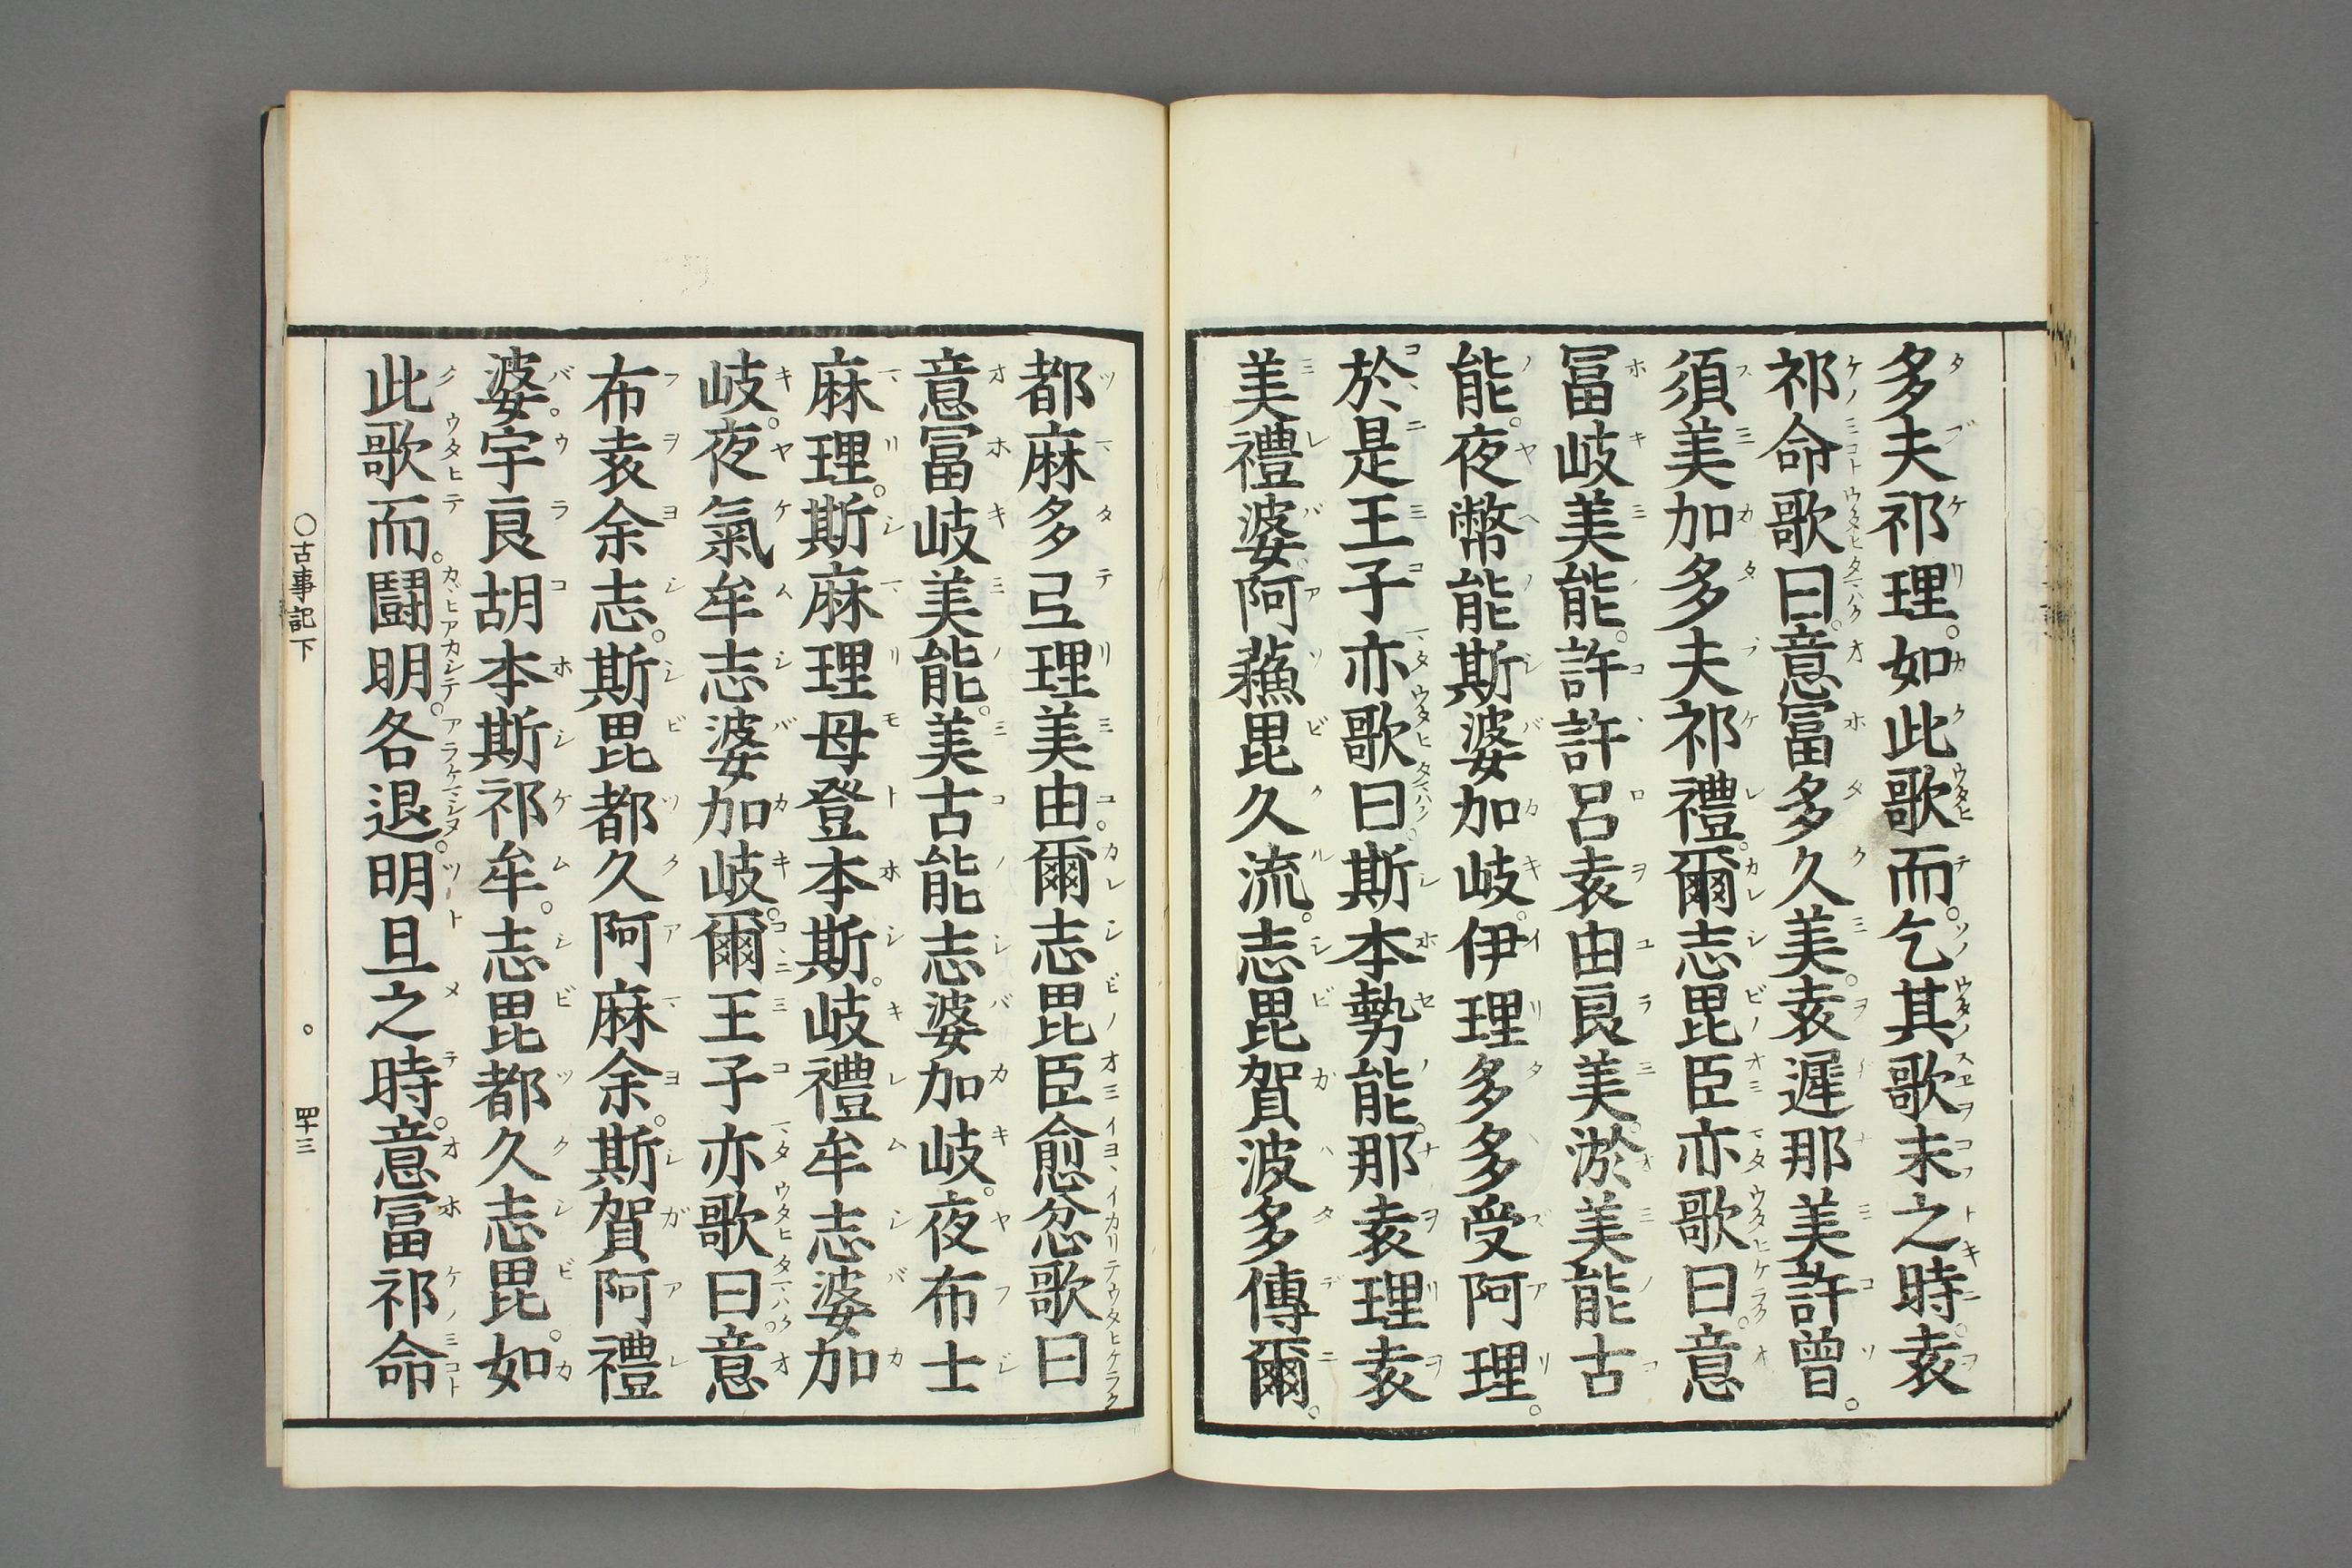 多夫祁理。如此歌而。乞其歌末之時。袁
祁命歌曰。意冨多久美。袁遲那美許曾。
須美加多夫祁禮。爾志毘臣亦歌曰。意
冨岐美能。許許呂袁由良美。淤美能古
能。夜幣能斯婆加岐。伊理多多受阿理。
於是王子亦歌曰。斯本勢能。那袁理袁
美禮婆。阿蘓毘久流。志毘賀波多傳爾。
都麻多弖理美由。爾志毘臣愈忿歌曰
意冨岐美能。美古能志婆加岐。夜布士
麻理。斯麻理母登本斯。岐禮牟志婆加
岐。夜氣牟志婆加岐。爾王子亦歌曰。意
布袁余志。斯毘都久阿麻余。斯賀阿禮
婆。宇良胡本斯祁牟。志毘都久志毘。如
此歌而。鬪明。各退。明旦之時。意冨祁命
○古事記下 。 四十三